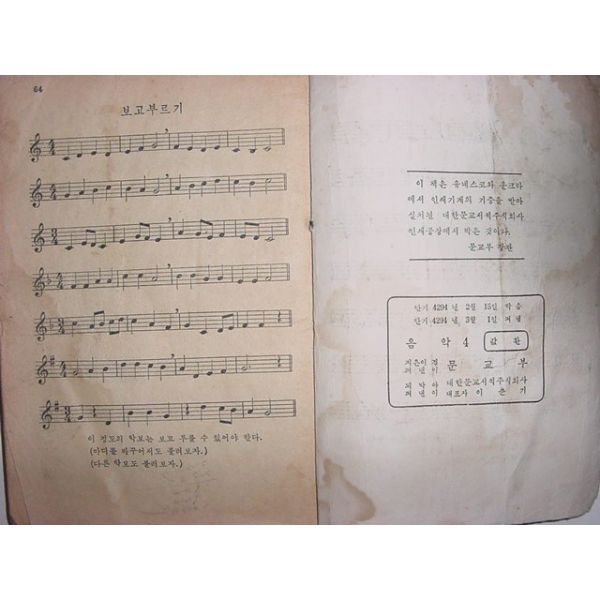 64
보고부르기
이 정도의 악보는 보고 부를 수 있어야 한다.
(마디를 바꾸어서도 불러보자.)
(다른 악보도 불러보자.)
이 책은 유네스코와 운크라
에서 인쇄기계의 기증을 받아
설치된 대한문교서적주식회사
인쇄공장에서 박은 것이다.
문교부 장관
단기 4294 년 2월 15일 박음
단기 4294 년 3월 1일 펴냄
음 악 4 값 환
지은이 겸 문 교 부
펴낸이
박은이 대한문교서적주식회사
펴낸이 대표자 이